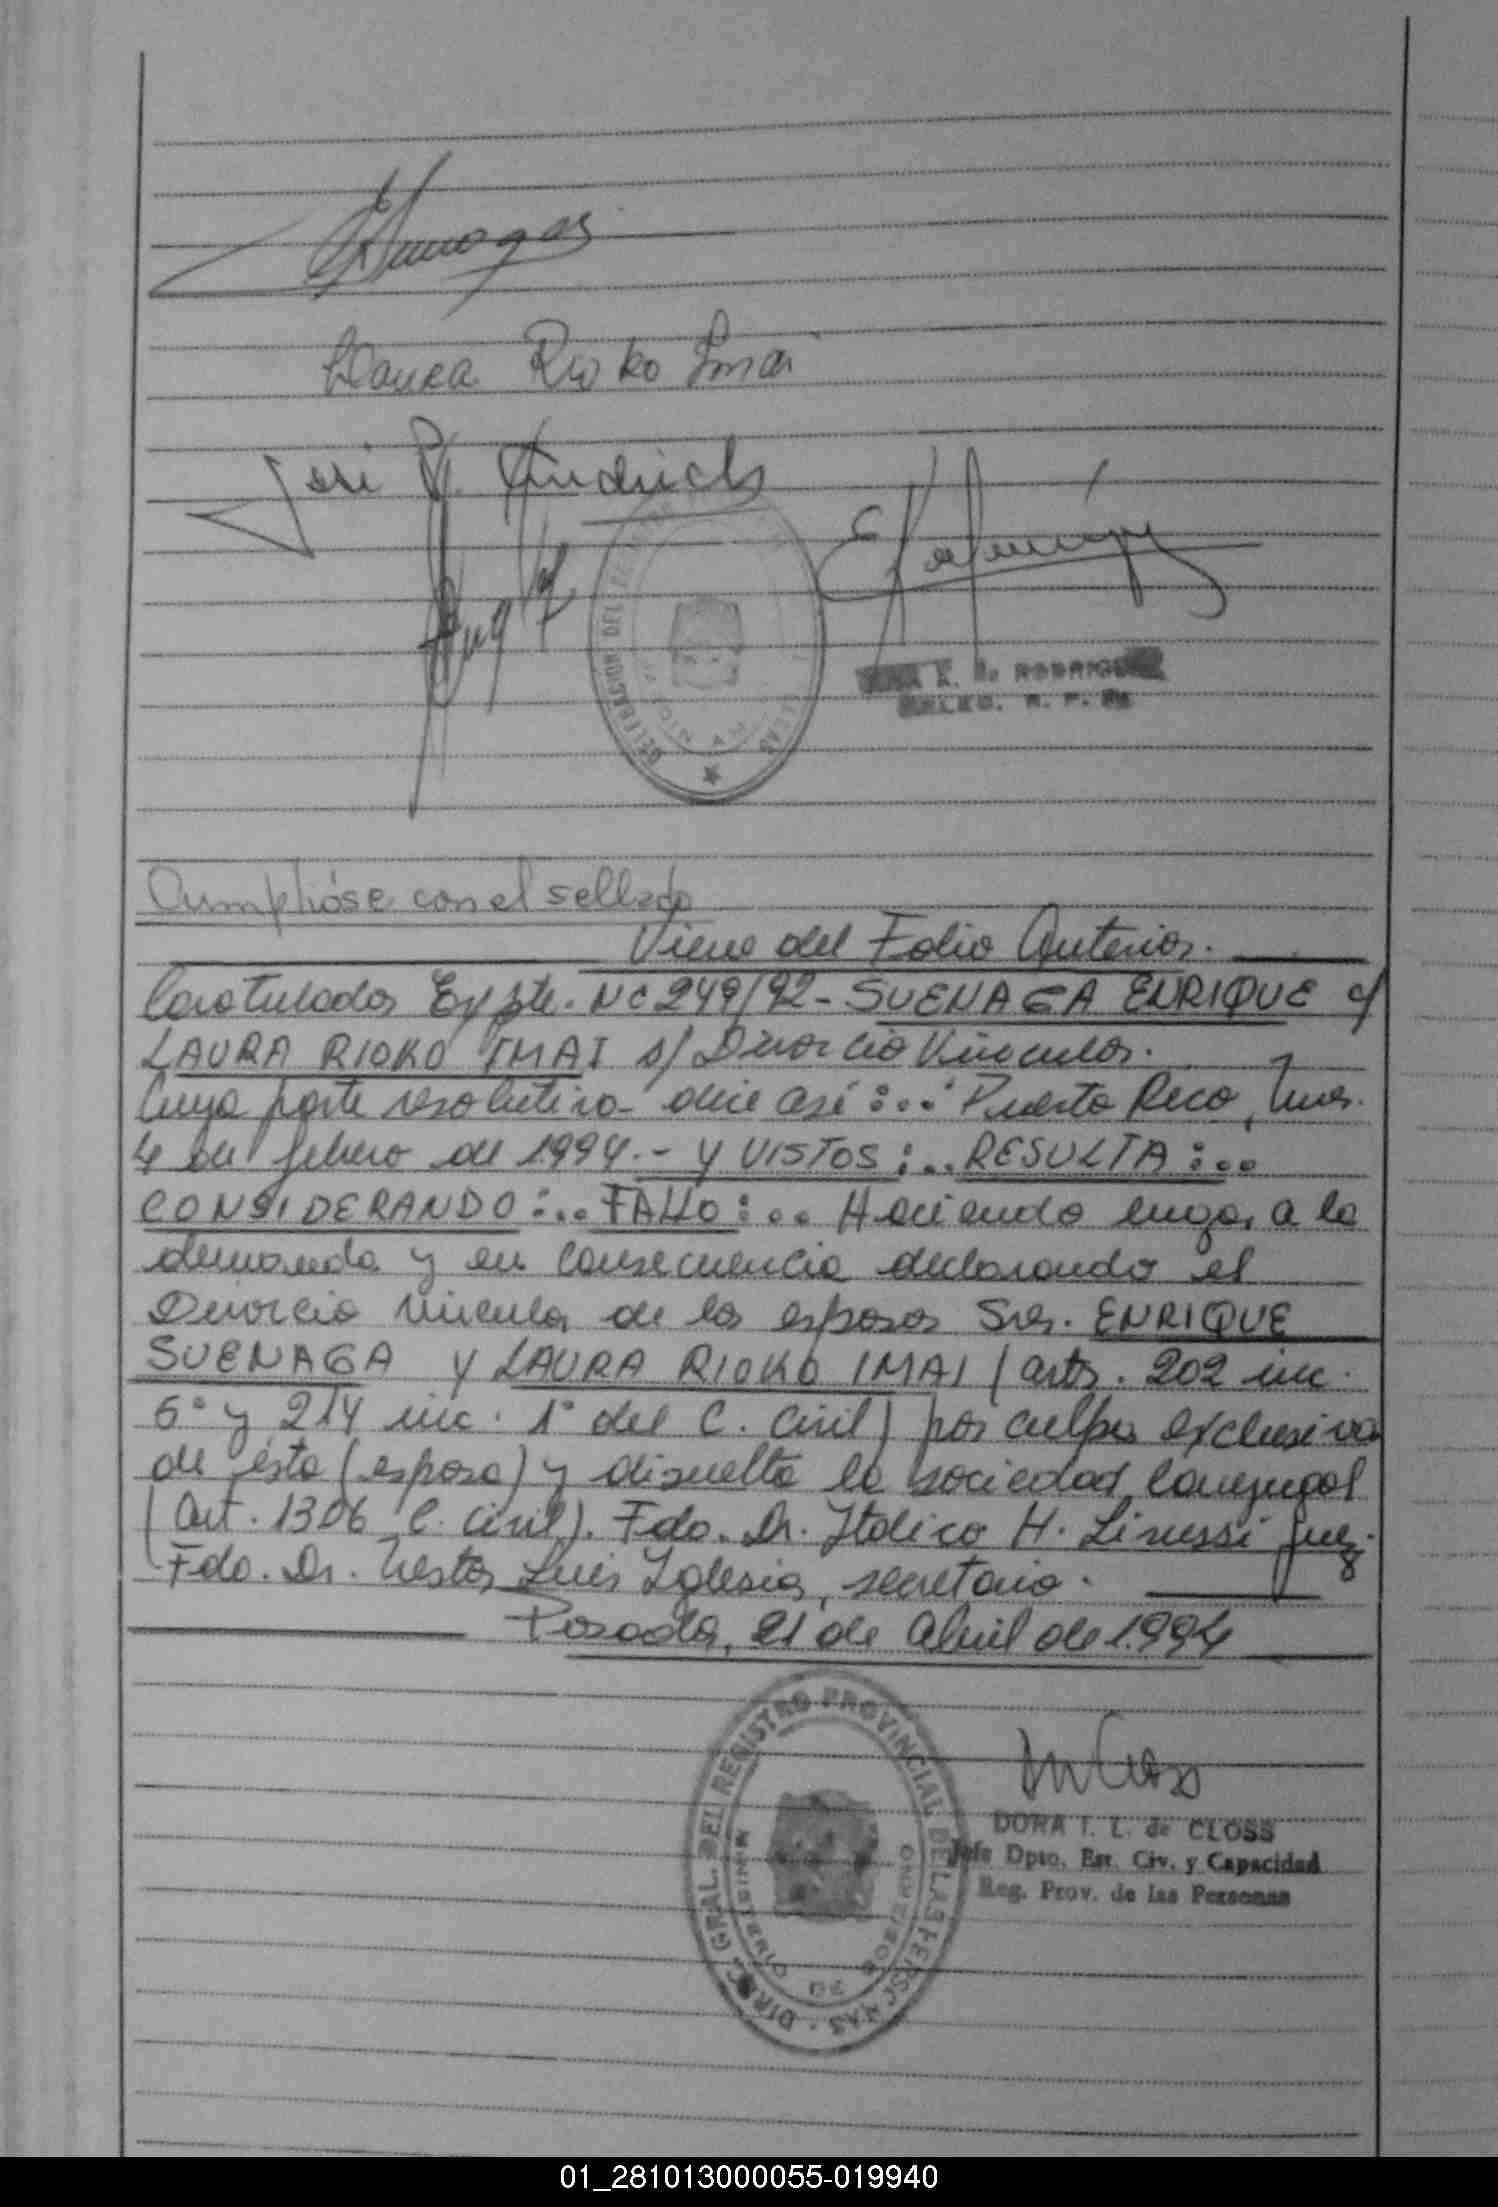 Laura Rioko Imai
José
Cumplióse con el sellado
Viene del Folio Anterior.
Caratulados Expte. Nº 249/92 - SUENAGA ENRIQUE c/
LAURA RIOKO IMAI s/ Divorcio Vincular.
Cuya parte resolutiva dice así:... Puerto Rico, Mnes.
4 de febrero de 1994.- Y VISTOS:... RESULTA:...
CONSIDERANDO:... FALLO:... Haciendo lugar a la
demanda y en consecuencia declarando el
Divorcio vincular de los esposos Sres. ENRIQUE
SUENAGA Y LAURA RIOKO IMAI (arts. 202 inc.
5° y 214 inc. 1° del C. Civil) por culpa exclusiva
de ésta (esposa) y disuelta la sociedad conyugal
(Art. 1306 C. Civil). Fdo. Dr. Italico H. Linessi Juez.
Fdo. Dr. Nestor Luis Iglesia, secretario.
Posadas, 21 de Abril de 1.994
DIREC. GRAL. DEL REGISTRO PROVINCIAL DE LAS PERSONAS
MINISTERIO DE GOBIERNO
DORA T. L. de CLOSS
Jefe Dpto. Est. Civ. y Capacidad
Reg. Prov. de las Personas
01_281013000055-019940